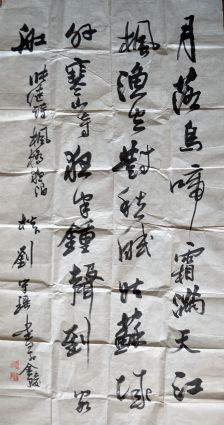 月落烏啼霜滿天江
楓漁火對愁眠姑蘇城
外寒山寺夜半鐘聲到客
船
張继詩楓橋夜泊
劉